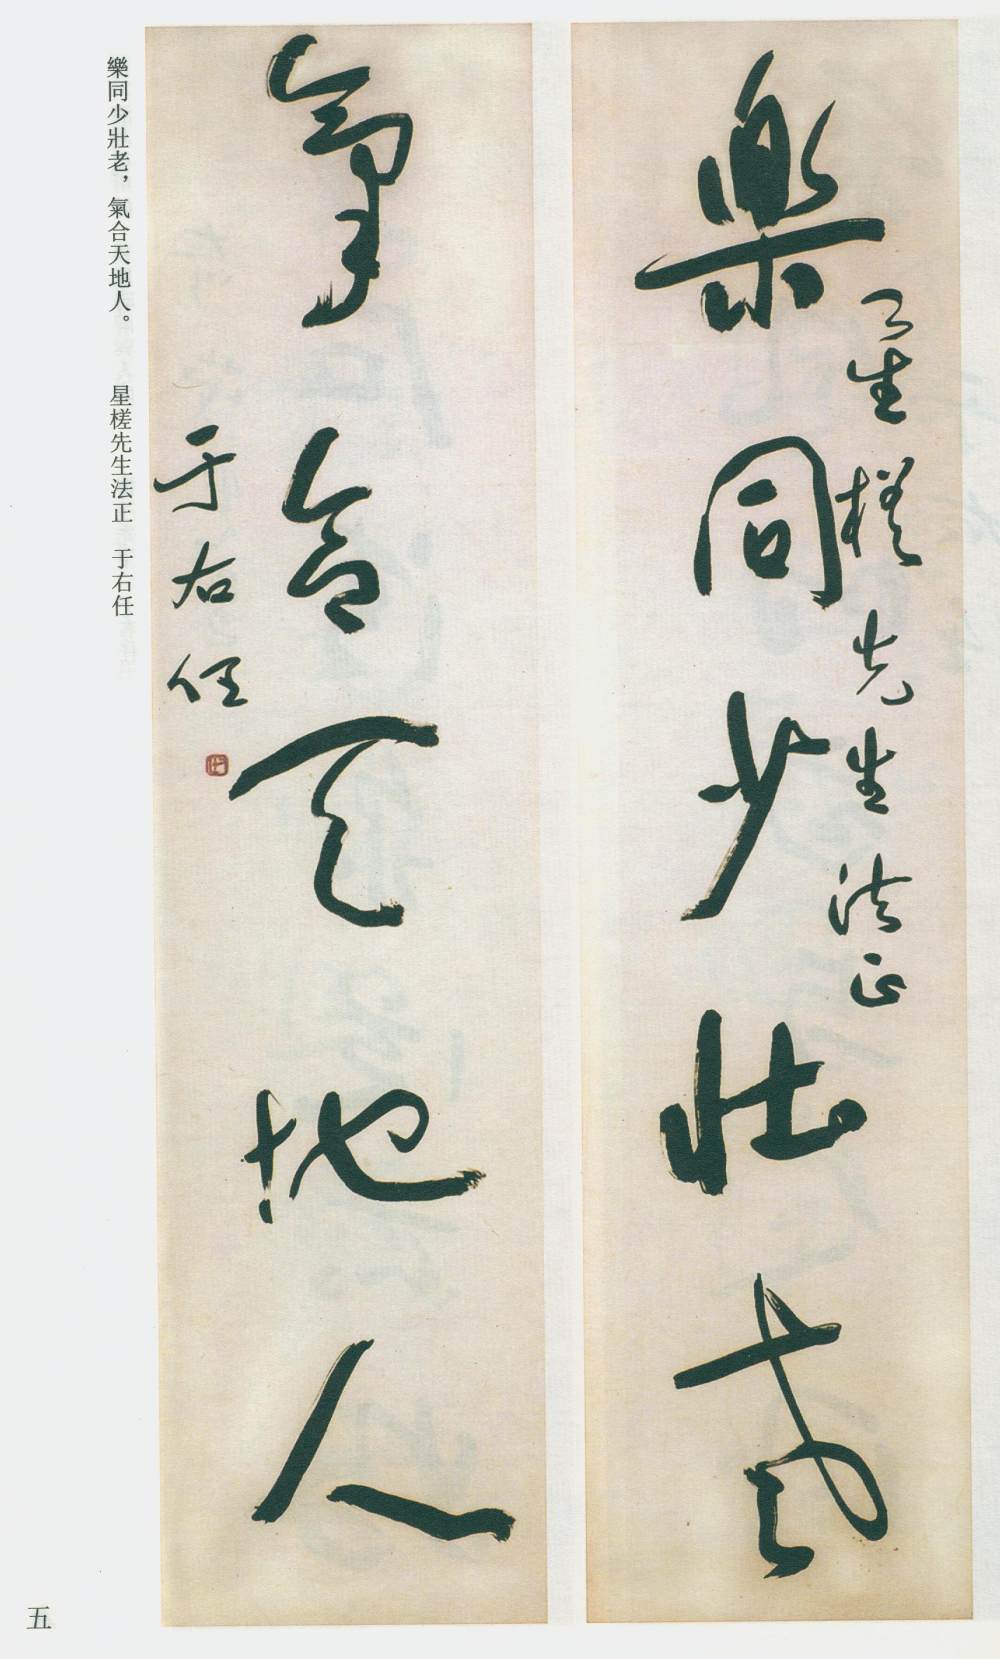 樂同少壯老
星槎先生法正
氣合天地人
于右任
樂同少壯老，氣合天地人。　星槎先生法正　于右任
五